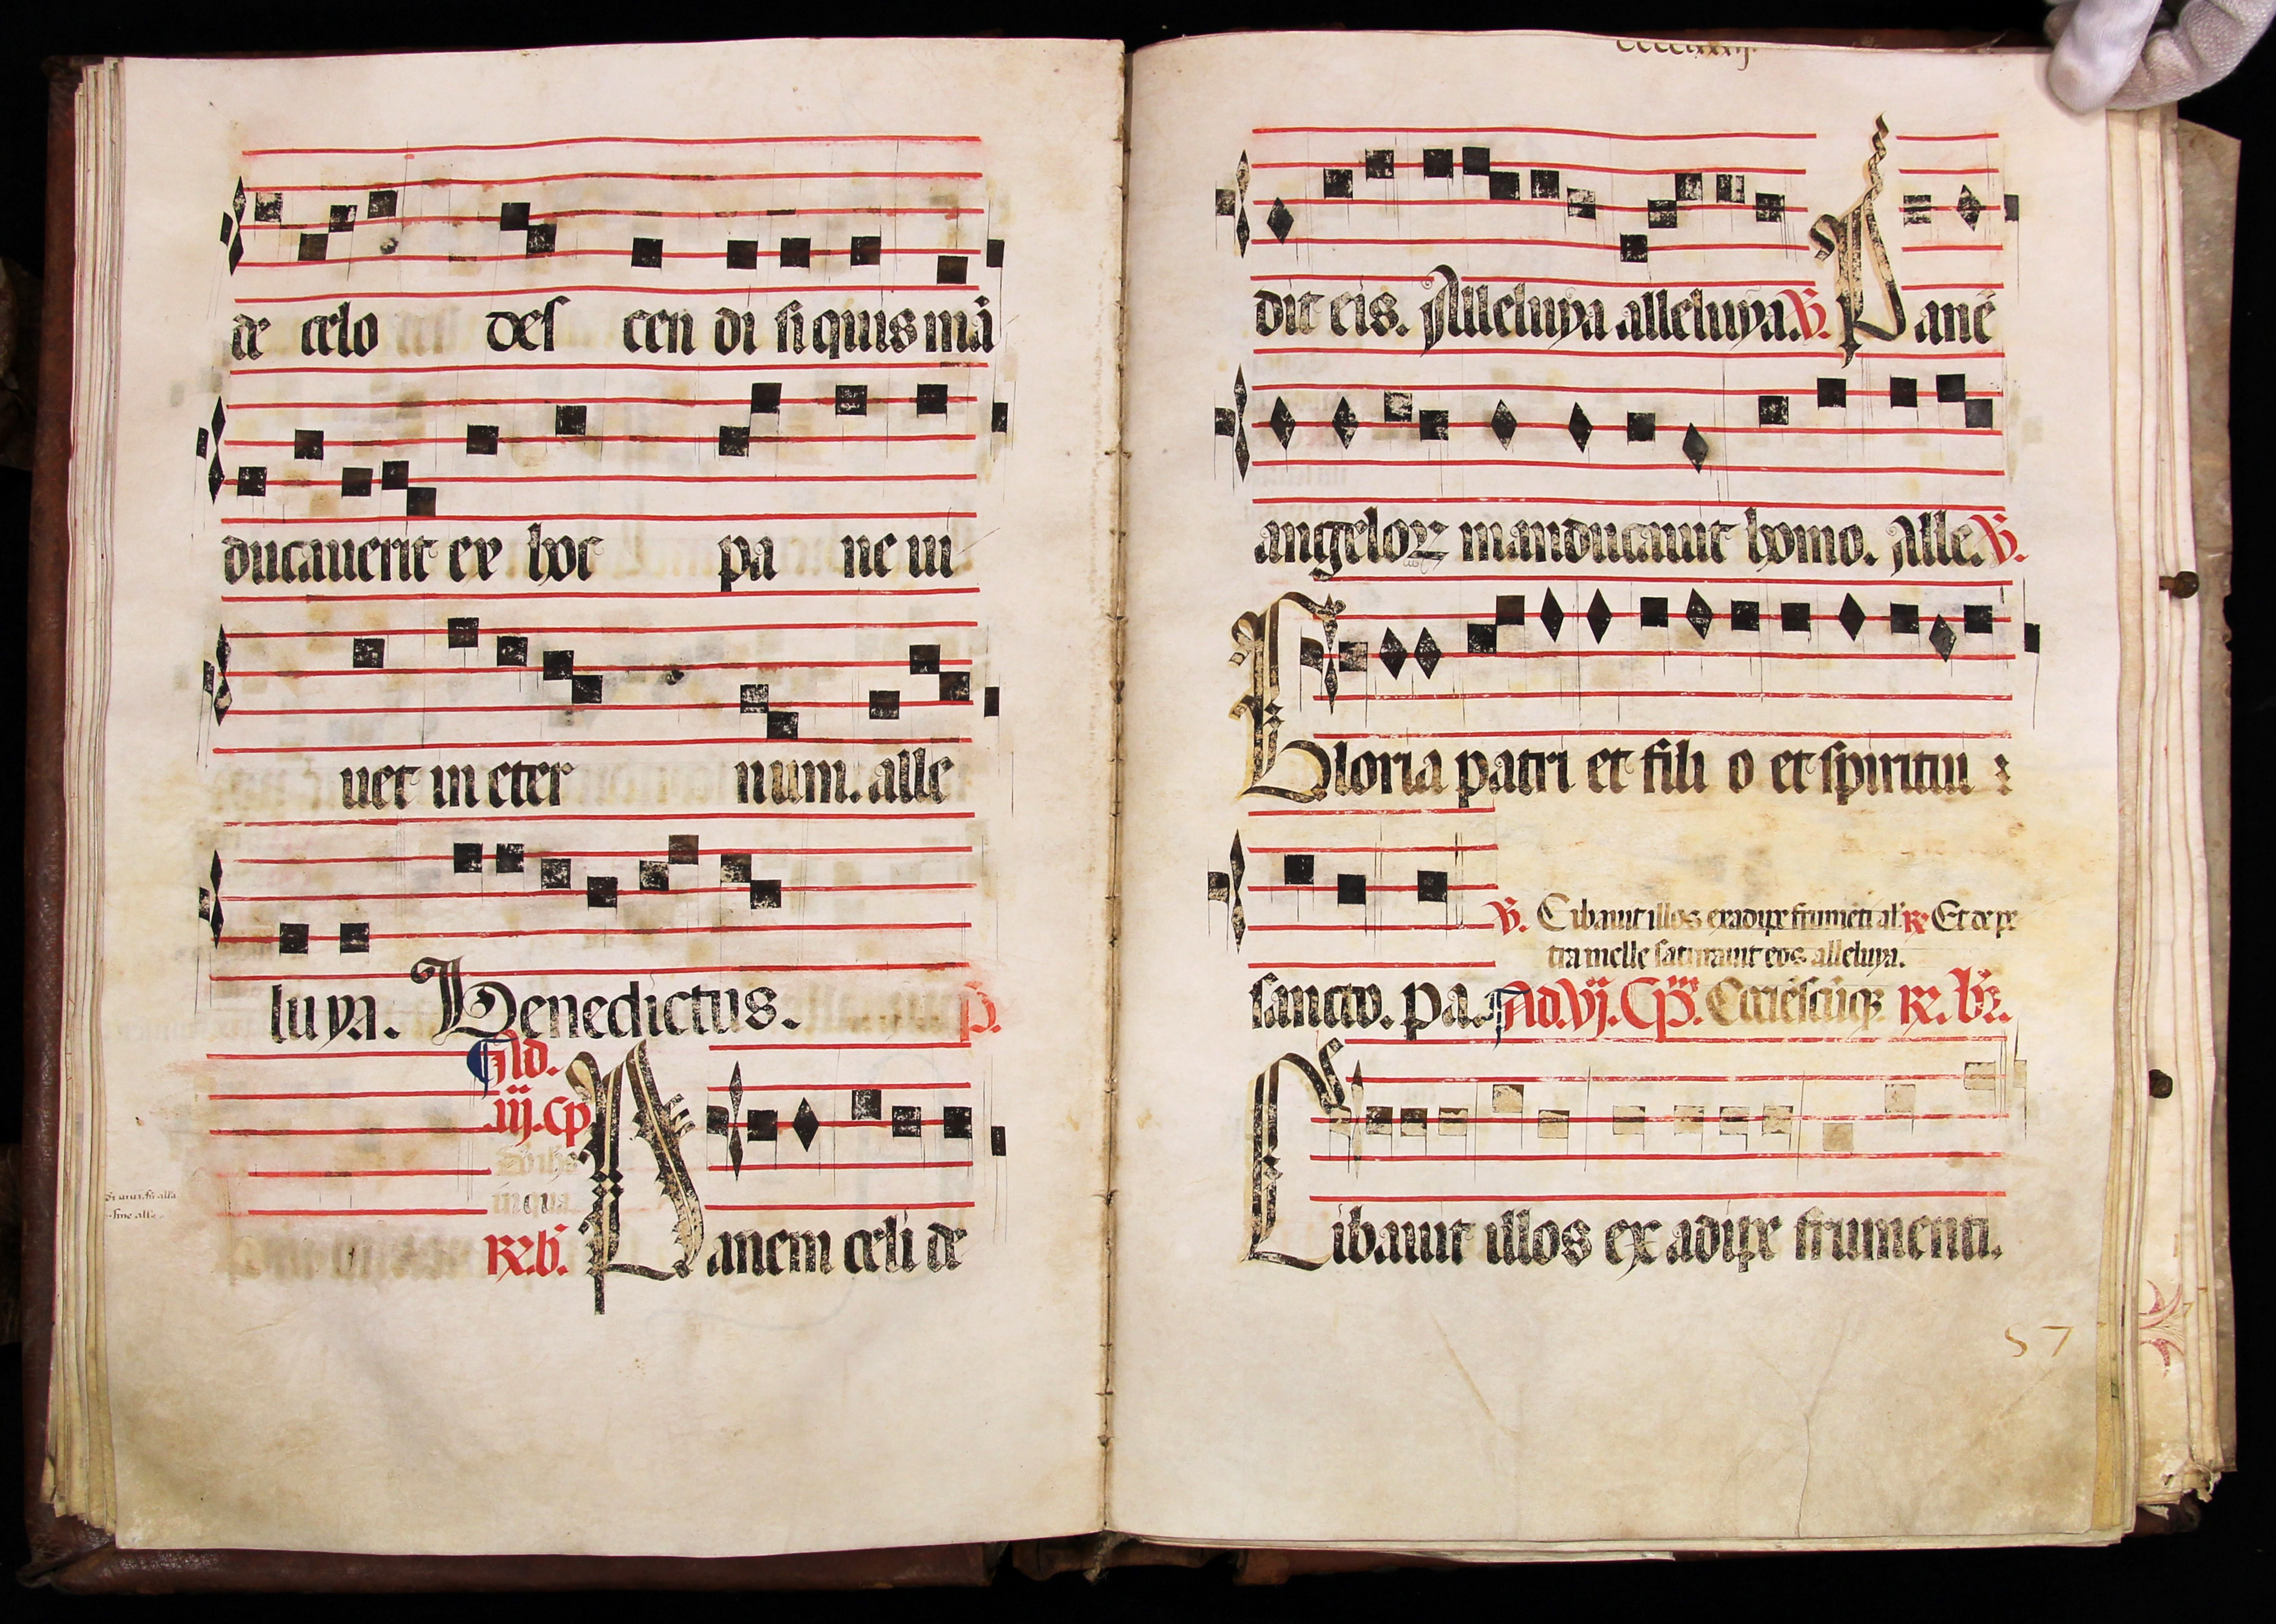 de celo des cen di si quis mā
ducauerit ex hoc pa ne ui
uet in eter num. alle
luya. Benedictus. p̄.
Ad.
.iij. cp̄
in qua
R̄. b̄. Panem celi de
dit eis. Alleluya alleluya. V̄. Panē
angeloꝝ manducauit homo. Alle. V̄.
Gloria patri et fili o et spiritui :
V̄. Cibauit illos ex adipe frumēti al' R̄ Et de pe
tra melle saturauit eos alleluya.
sancto. pa. Ad. vj. Cp̄. R̄. br̄.
Cibauit illos ex adipe frumenti.
57